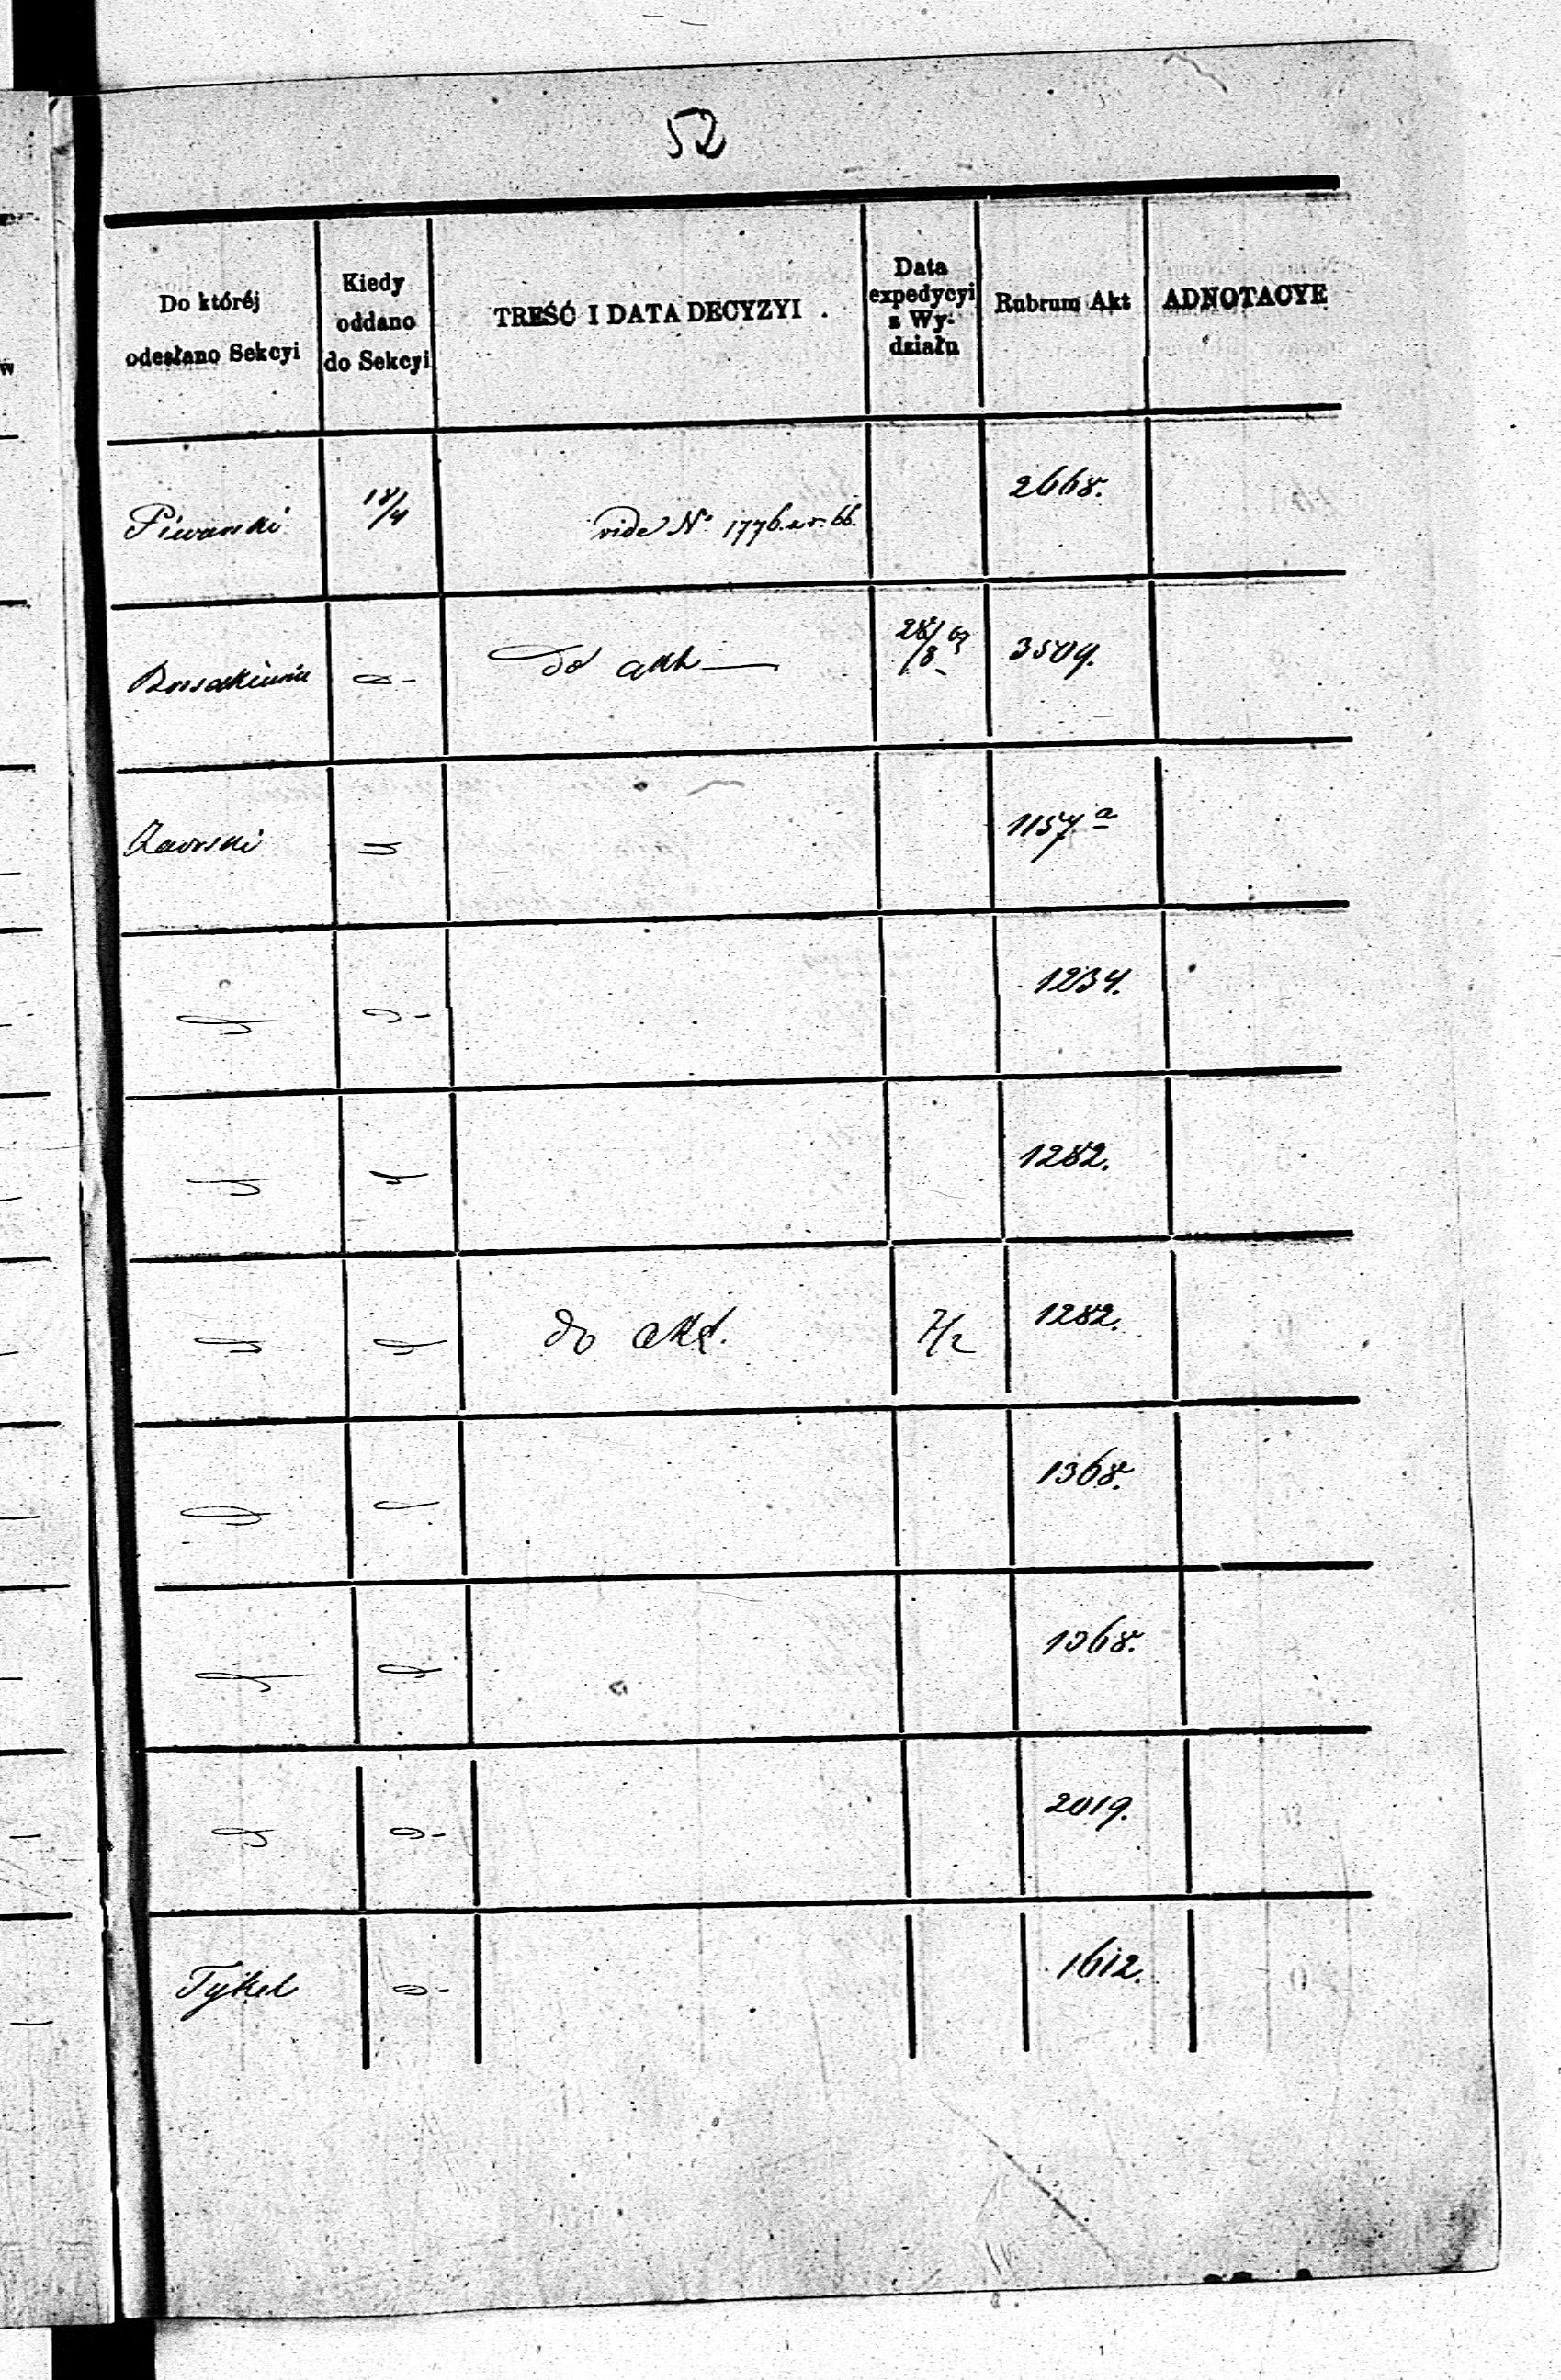 52
Do któréj odesłano Sekcyi
Kiedy oddano do Sekcyi
TREŚĆ I DATA DECYZYI .
Data expedycyi z Wydziału
Rubrum Akt
ADNOTACYE
Piwarski 18/4 vide No 1776. z r. 66. 2668.
do akt 28/8 67 3509.
Zaorski 1157 a
1234.
1282.
do akt. 7/2 1282.
1368.
1368.
2019.
Tykel 1612.